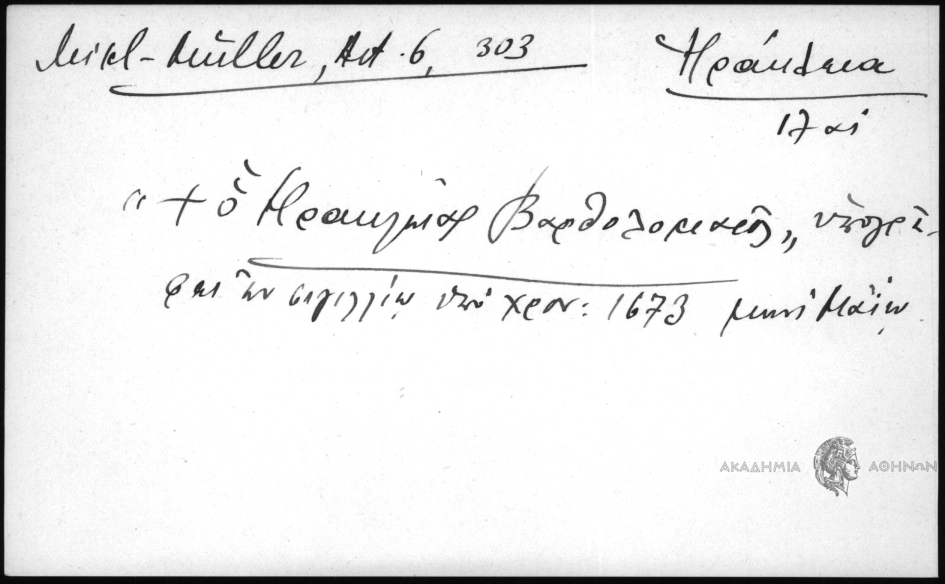 Mikl-Müller, Act. 6, 303
Ἡράκλεια
17 αἰ
"+ ὁ Ἡρακλείας Βαρθολομαῖος„ ὑπογρά-
φει ἐν σιγιλλίῳ ὑπὸ χρον: 1673 μηνὶ Μαΐῳ
ΑΚΑΔΗΜΙΑ ΑΘΗΝΩΝ